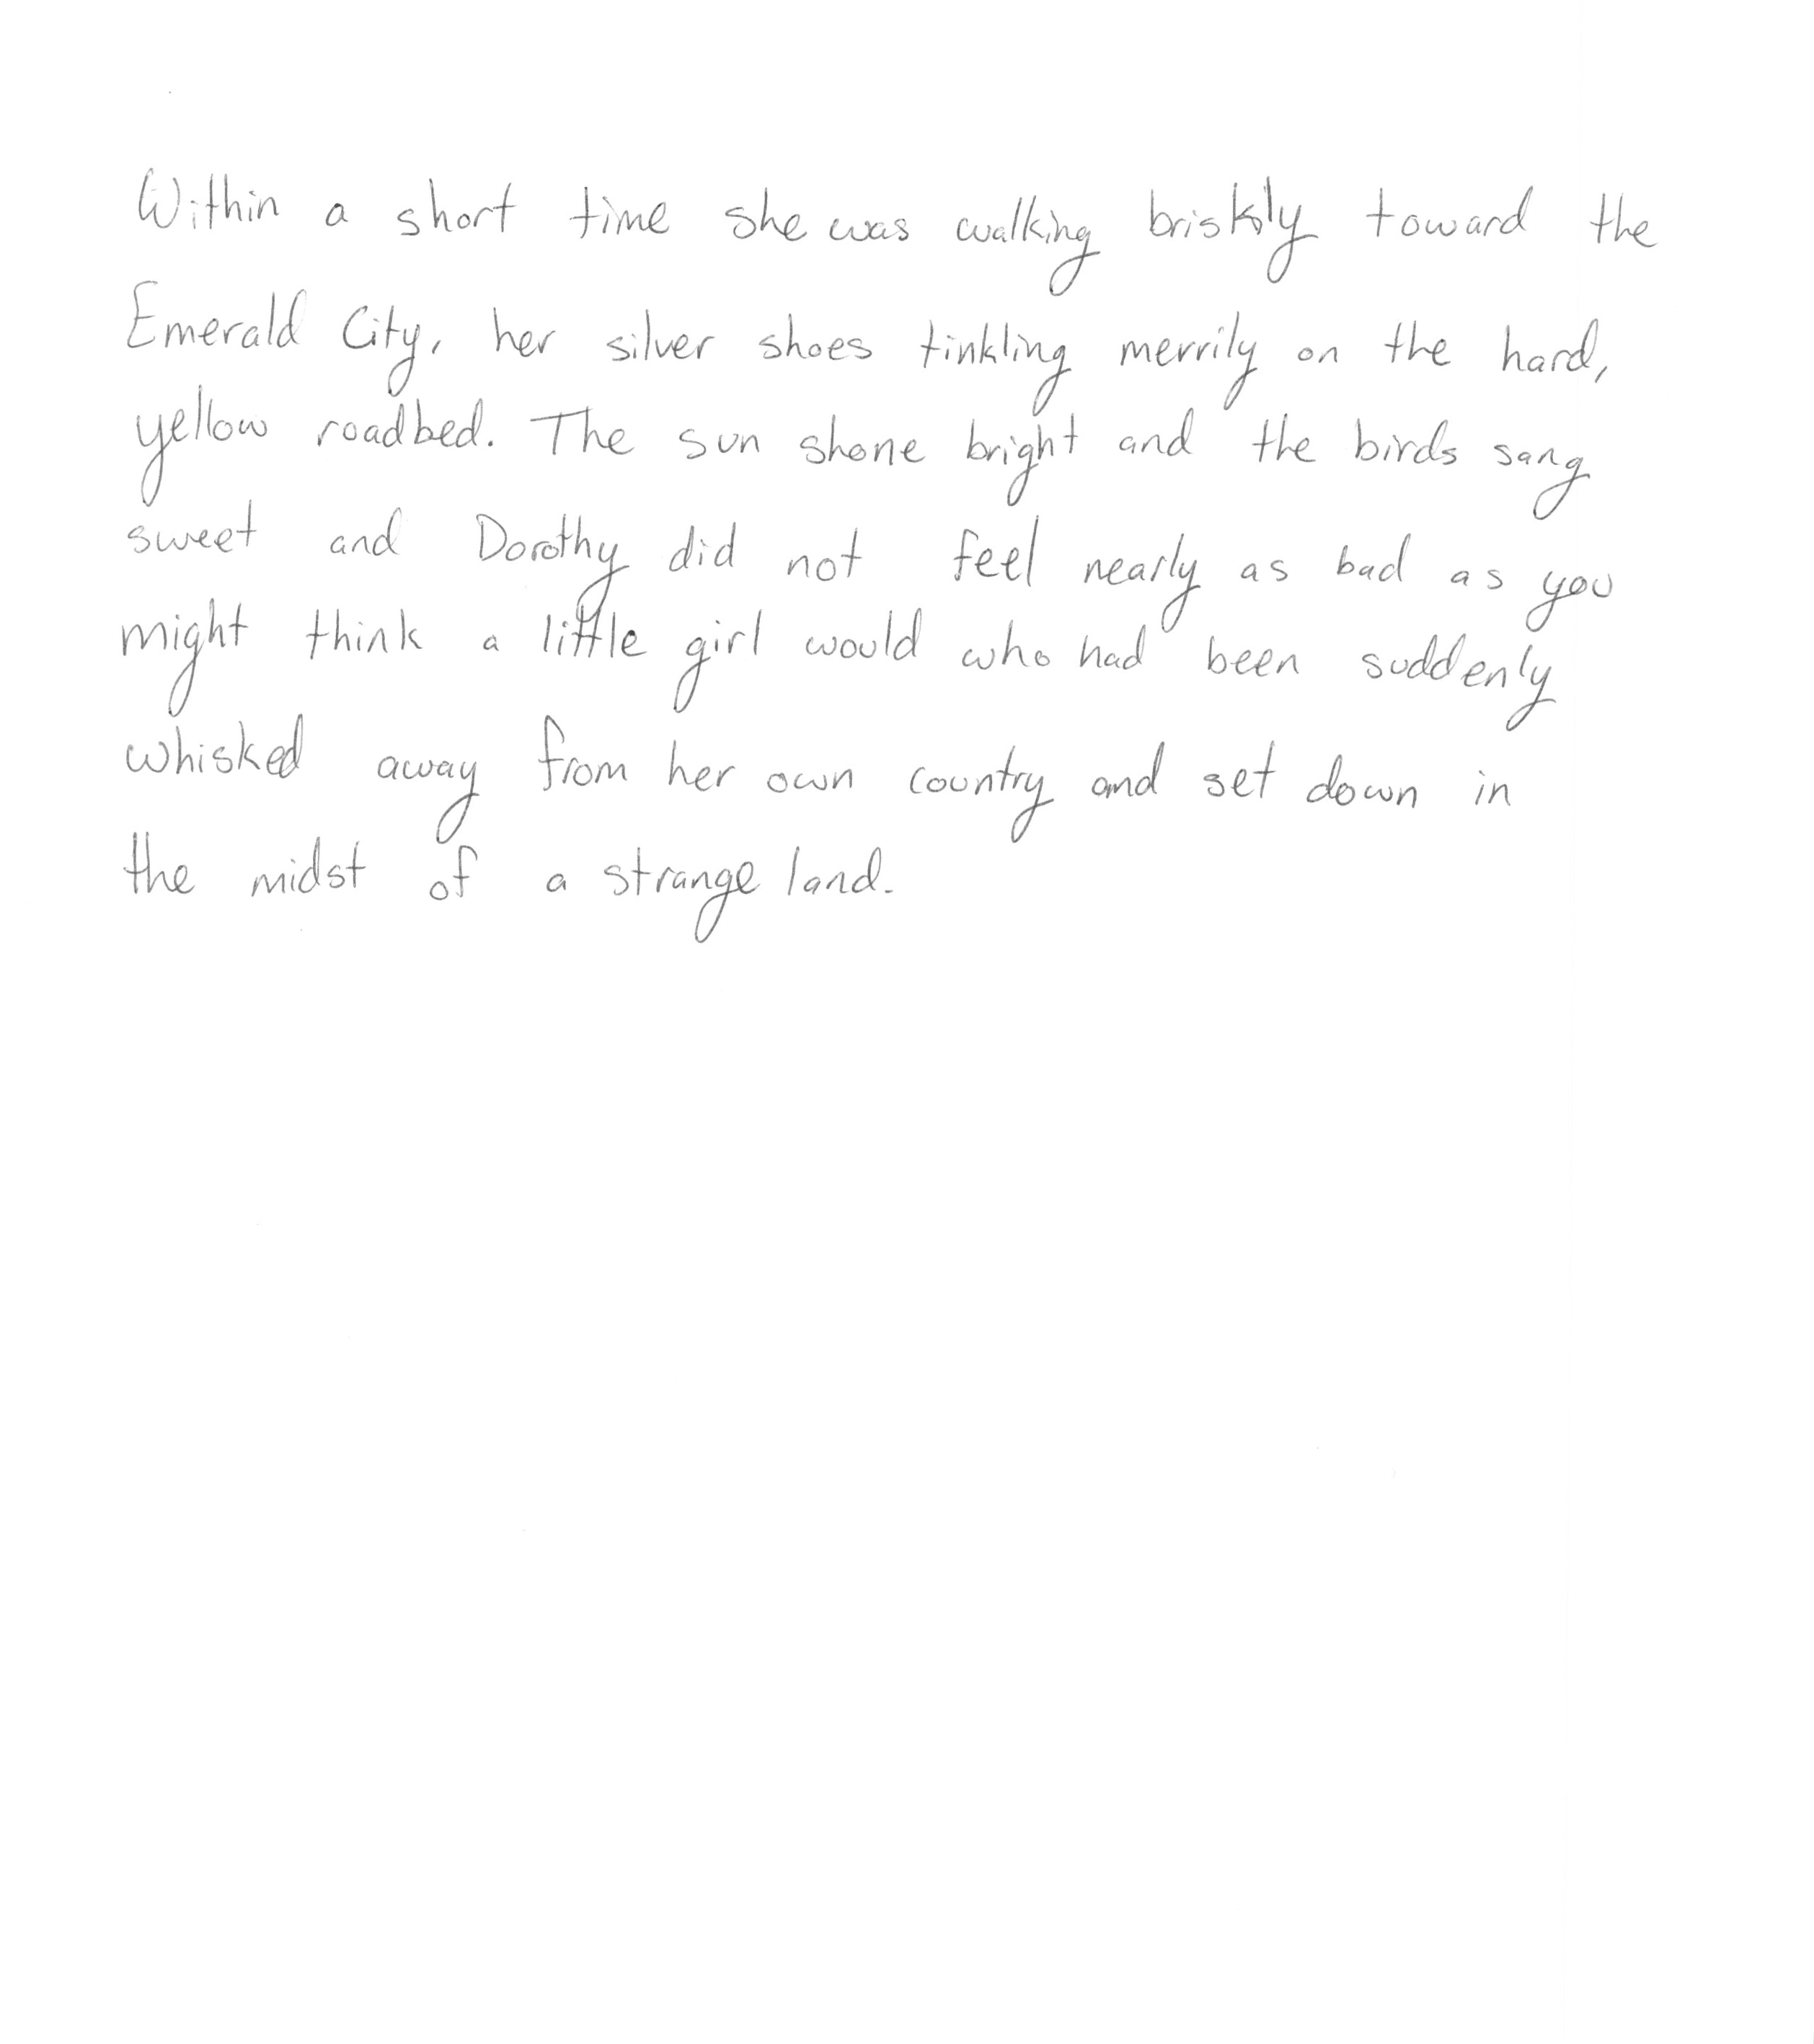 Within a short time she was walking briskly toward the
Emerald City, her silver shoes tinkling merrily on the hard,
yellow roadbed. The sun shone bright and the birds sang
sweet and Dorothy did not feel nearly as bad as you
might think a little girl would who had been suddenly
whisked away from her own country and set down in
the midst of a strange land.